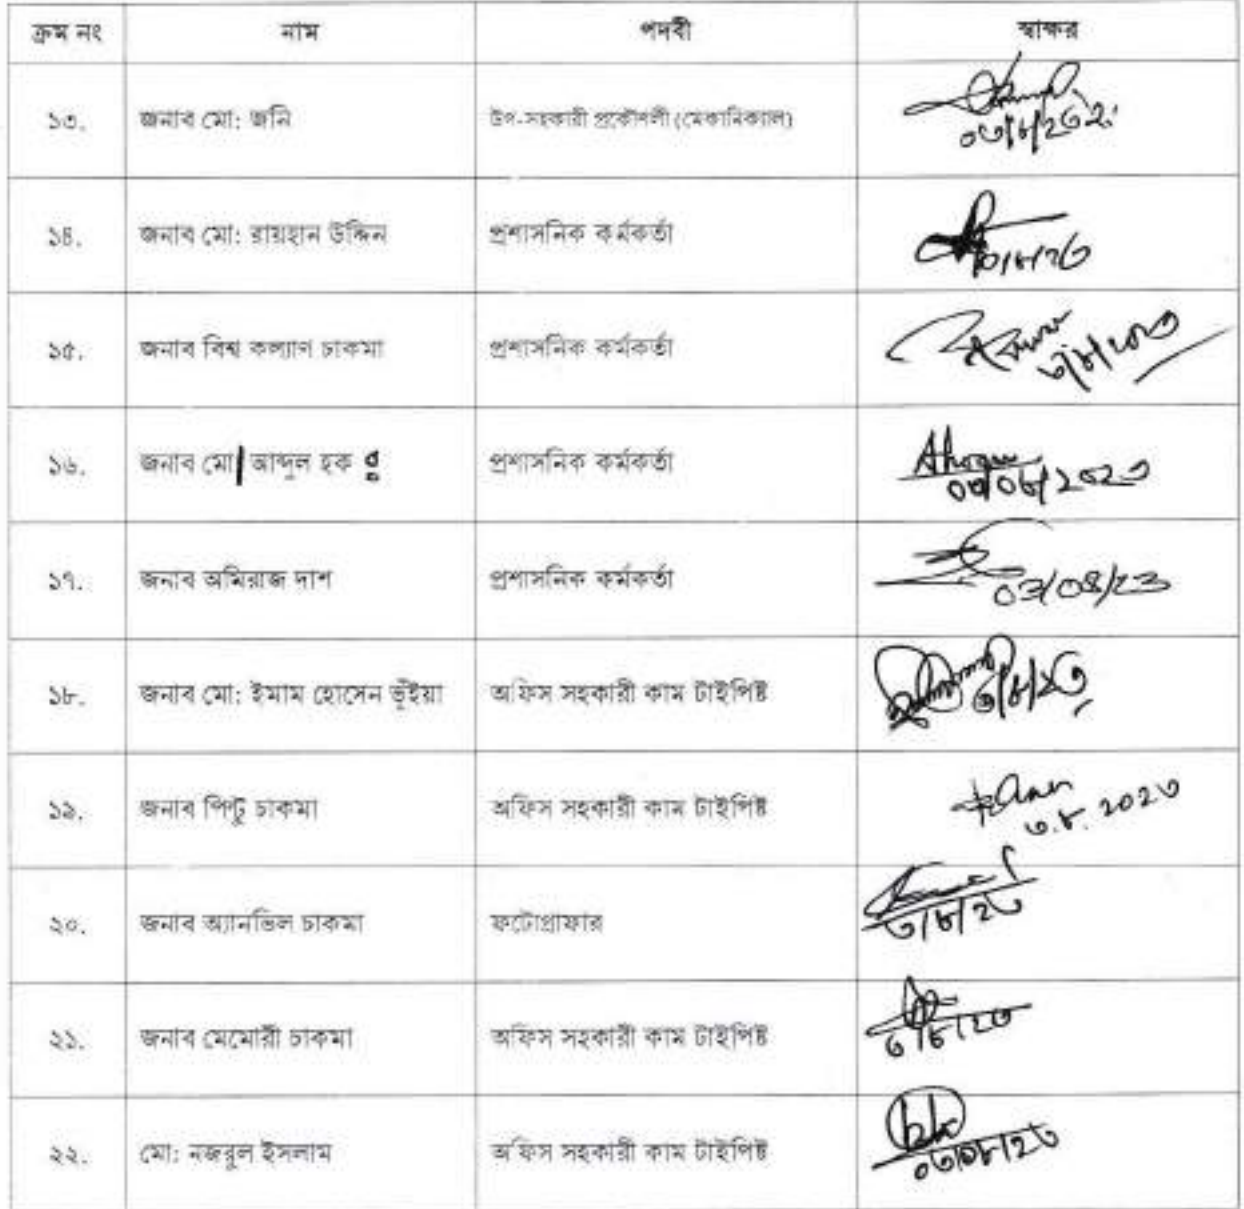 ক্রম নং নাম পদবী স্বাক্ষর
১৩. জনাব মো: জনি উপ-সহকারী প্রকৌশলী (মেকানিক্যাল)
০৩/৮/২০২৩
১৪. জনাব মো: রায়হান উদ্দিন প্রশাসনিক কর্মকর্তা
১৫. জনাব বিশ্ব কল্যাণ চাকমা প্রশাসনিক কর্মকর্তা
৩/৮/২০২৩
১৬. জনাব মো আব্দুল হক প্রশাসনিক কর্মকর্তা Ahoque
০৩/০৮/২০২৩
১৭. জনাব অমিরাজ দাশ প্রশাসনিক কর্মকর্তা
03/08/23
১৮. জনাব মো: ইমাম হোসেন ভূঁইয়া অফিস সহকারী কাম টাইপিষ্ট ৩/৮/২৩
১৯. জনাব পিন্টু চাকমা অফিস সহকারী কাম টাইপিষ্ট
৩.৮. ২০২৩
২০. জনাব অ্যানভিল চাকমা ফটোগ্রাফার
৩/৮/২৩
২১. জনাব মেমোরী চাকমা অফিস সহকারী কাম টাইপিষ্ট
৩/৮/২৩
২২. মো: নজরুল ইসলাম অফিস সহকারী কাম টাইপিষ্ট
০৩/০৮/২৩